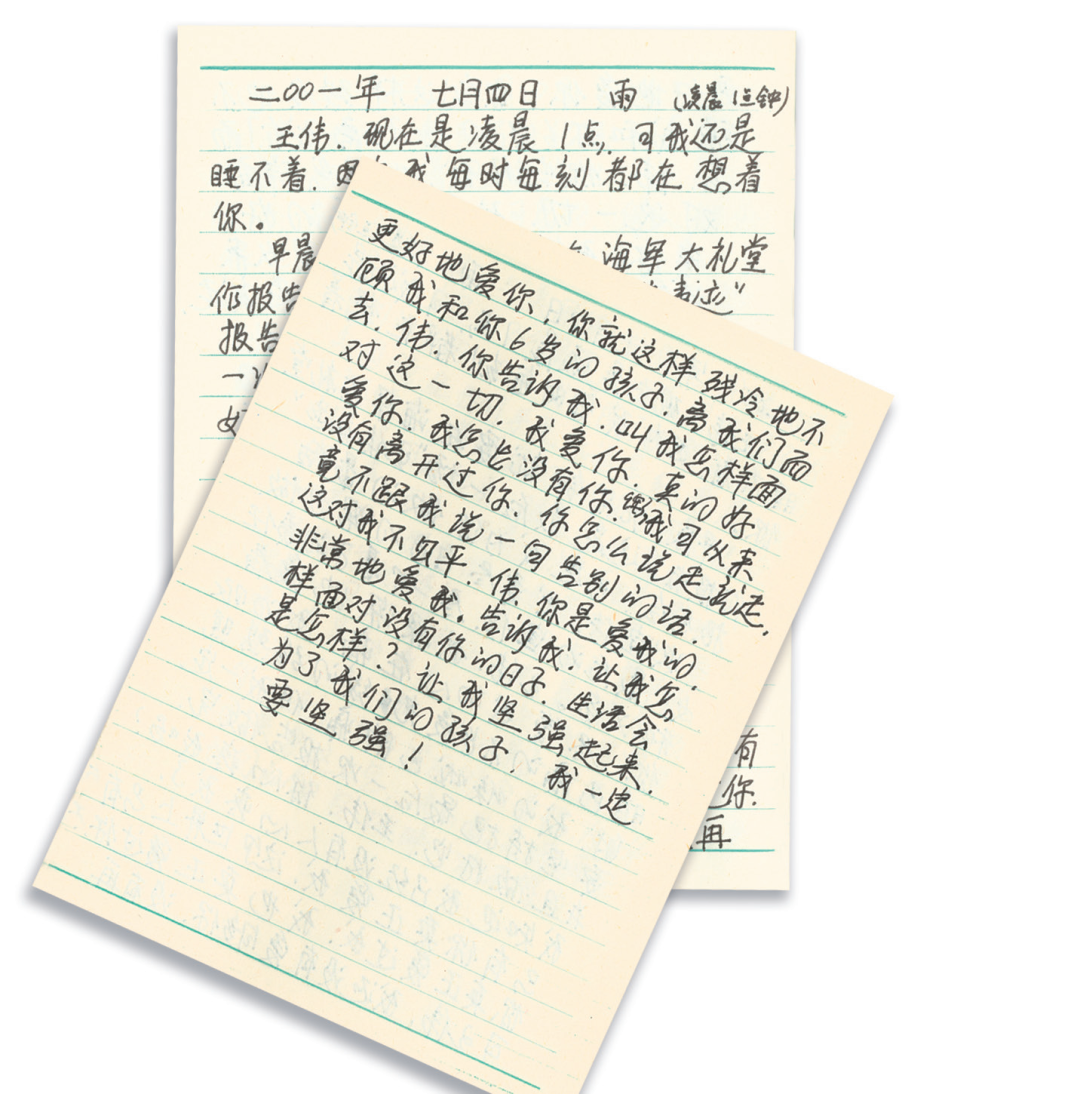 二〇〇一年 七月四日 雨 (凌晨1点钟)
王伟.现在是凌晨1点,可我还是
睡不着.因 我每时每刻都在想着
你。
早晨 海军大礼堂
作报告 事迹"
报告
一
好
有
你.
再
更好地爱你,你就这样残冷地不
顾我和你6岁的孩子.离我们而
去.伟.你告诉我.叫我怎样面
对这一切.我爱你.真的好
爱你.我怎能没有你.我可从来
没有离开过你.你怎么说走就走,
竟不跟我说一句告别的话.
这对我不公平.伟.你是爱我的.
非常地爱我.告诉我.让我怎
样面对没有你的日子.生活会
是怎样?让我坚强起来.
为了我们的孩子.我一定
要坚强!